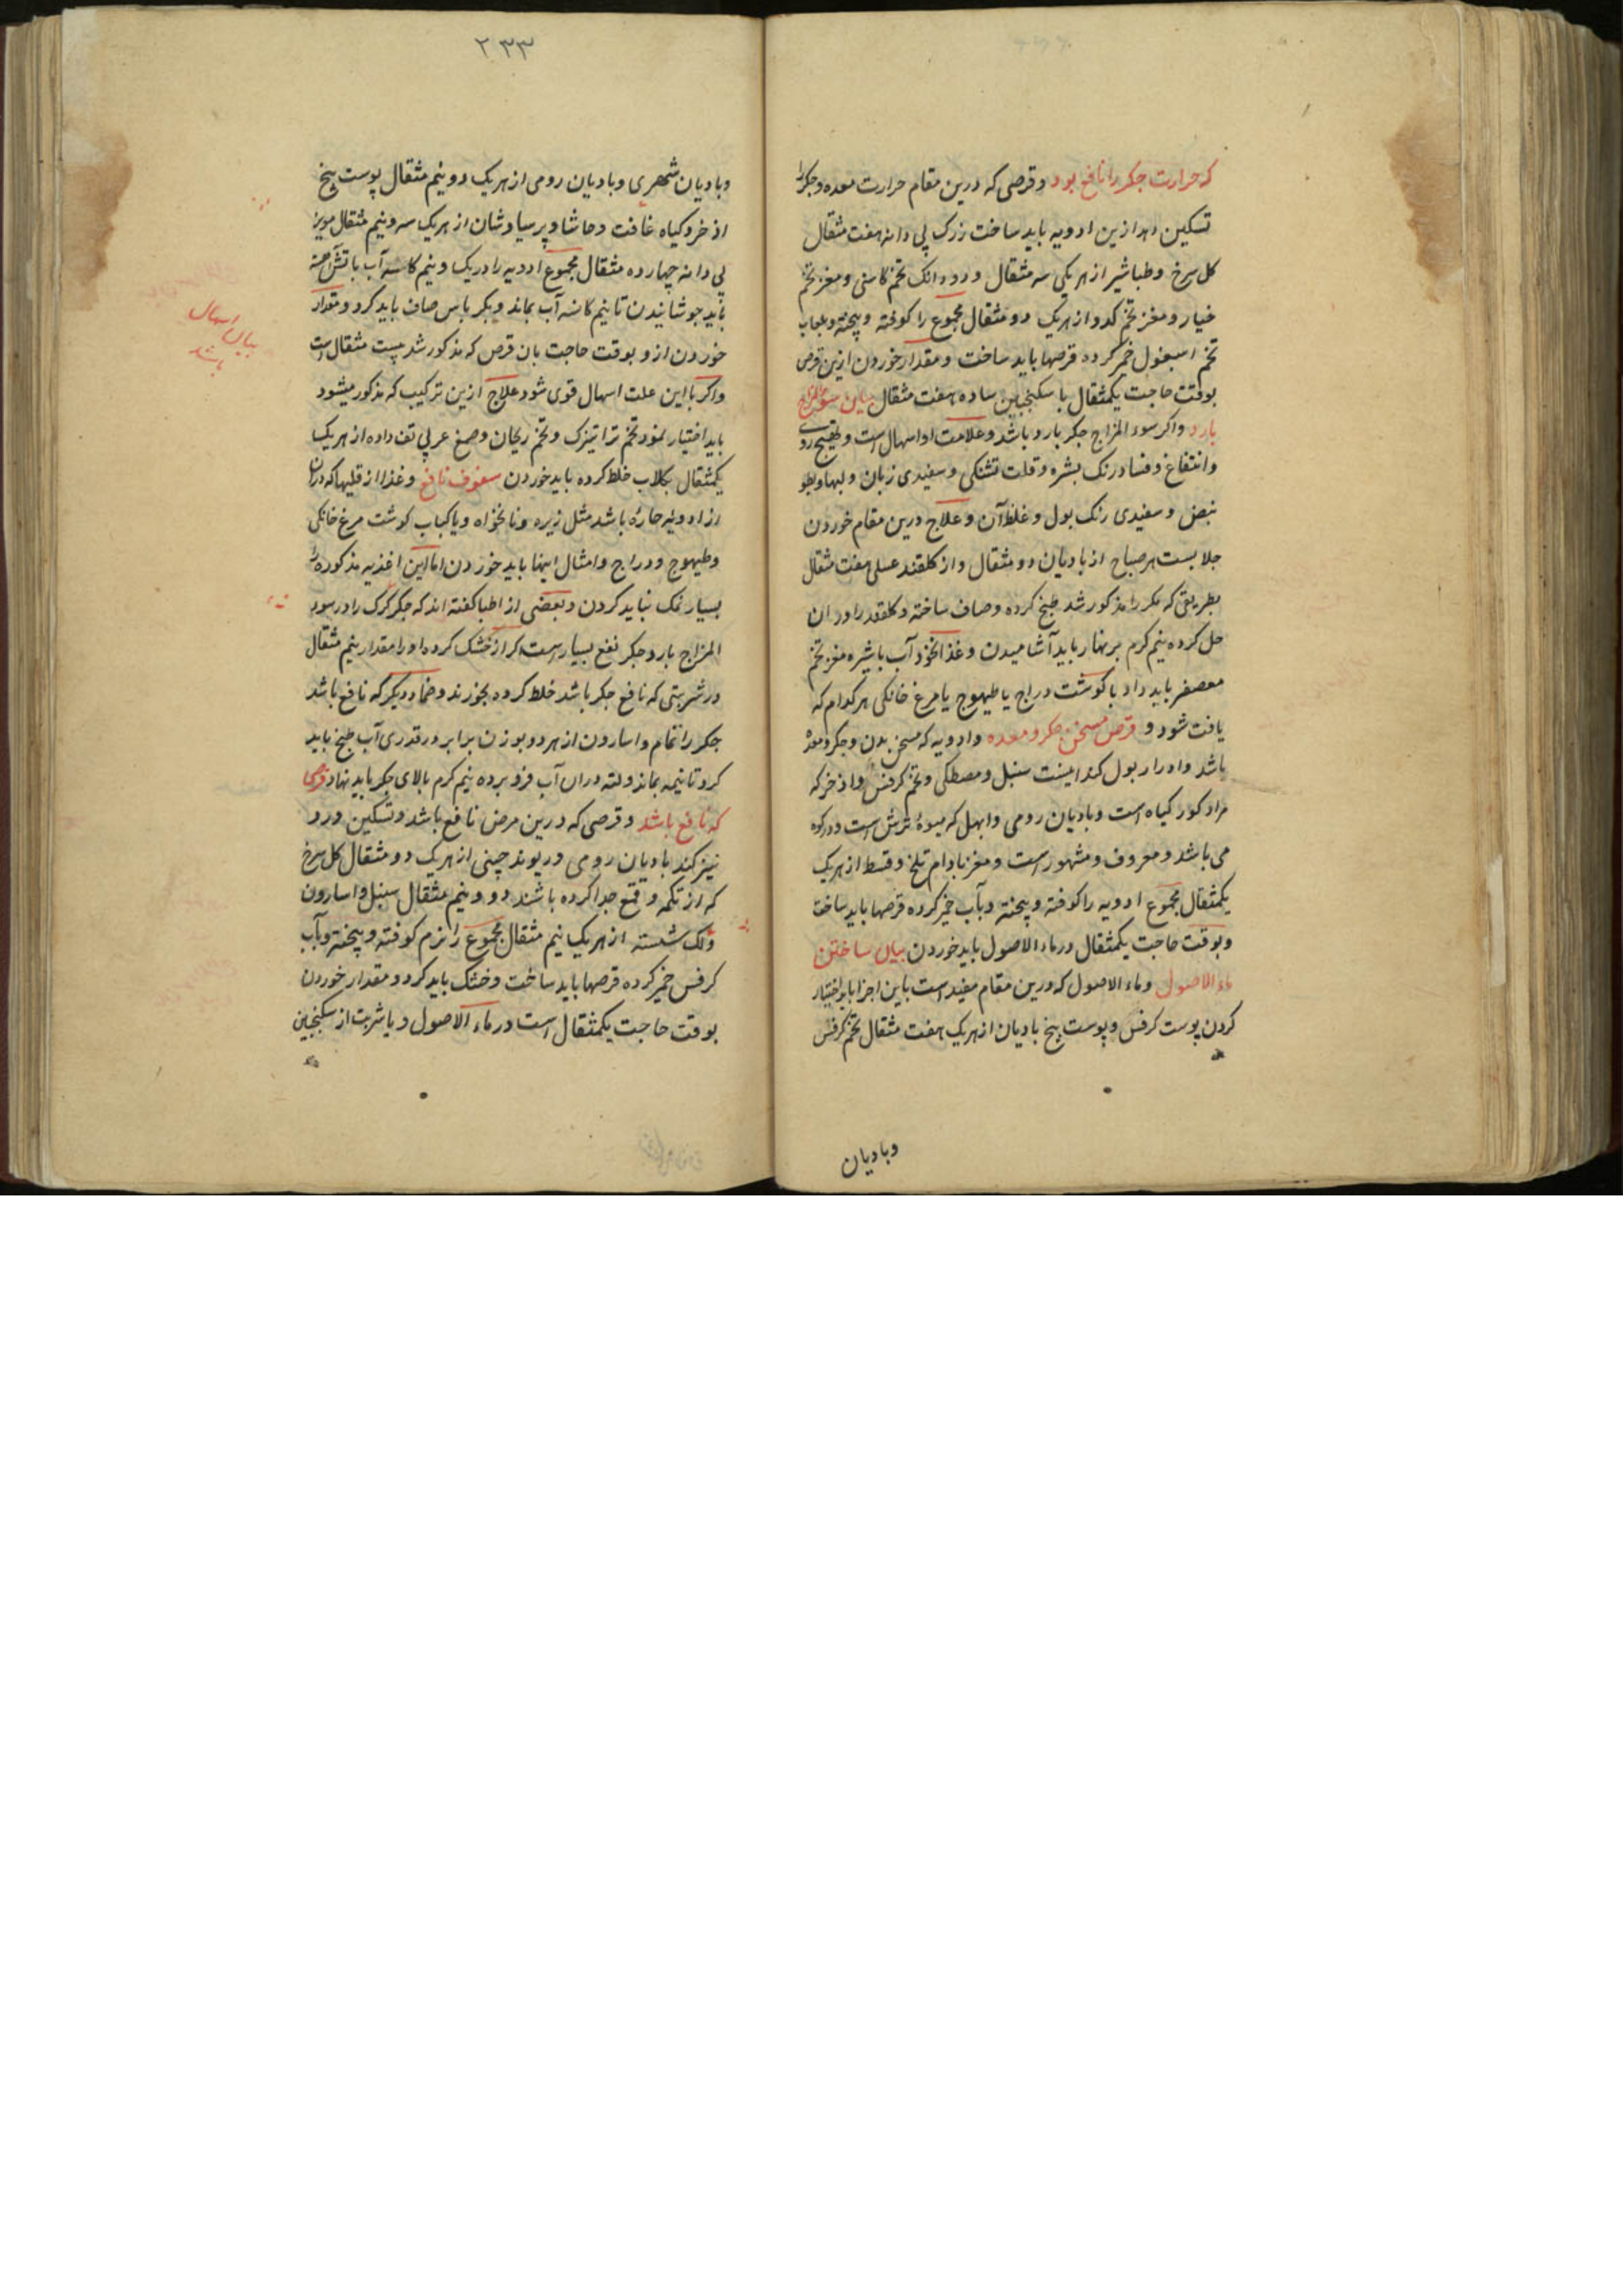 که حرارت جکر را نافع بود و قرصی که درین مقام حرارت معده و جکر را
تسکین دهد ازین ادویه باید ساخت زرک بی دانه هفت مثقال
کل سرخ و طباشیر از هر یکی سه مثقال و دو دانک تخم کاسنی و مغز تخم
خیار و مغز تخم کدو از هر یک دو مثقال مجموع را کوفته و پیخته و بلعاب
تخم اسبغول خمیر کرده قرصها باید ساخت و مقدار خوردن ازین قرص
بوقت حاجت یکمثقال با سکنجبین ساده هفت مثقال بیان سوء المزاج
بارد و اکر سوء المزاج جکر بارد باشد و علامت او اسهال است و تهیج روی
و انتفاخ و فساد رنک بشره و قلت تشنکی و سفیدی زبان و لبها و بطو
نبض و سفیدی رنک بول و غلظ آن و علاج درین مقام خوردن
جلابست هر صباح از بادیان دو مثقال و از کلقند عسلی هفت مثقال
بطریقی که مکرر مذکور شد طبخ کرده و صاف ساخته و کلقند را در ان
حل کرده نیم کرم بر نهار باید آشامیدن و غذا نخود آب با شیره مغز تخم
معصفر باید داد با کوشت دراج یا طیهوج یا مرغ خانکی هر کدام که
یافت شود و قرص مسخن جکر و معده و ادویه که مسخن بدن و جکر و معده
باشد و ادرار بول کند اینست سنبل و مصطکی و تخم کرفس و اذخر که
مراد کور کیاه است و بادیان رومی و ابهل که میوهٔ ترش است و در کوه
می باشد و معروف و مشهور است و مغز بادام تلخ و قسط از هر یک
یکمثقال مجموع ادویه را کوفته و پیخته و بآب خمیر کرده قرصها باید ساخت
و بوقت حاجت یکمثقال در ماء الاصول باید خوردن بیان ساختن
ماء الاصول و ماء الاصول که درین مقام مفید است باین اجزا باید اختیار
کردن پوست کرفس و پوست بیخ بادیان از هر یک هفت مثقال تخم کرفس
و بادیان
۲۳۳
و بادیان شهری و بادیان رومی از هر یک دو نیم مثقال پوست بیخ
اذخر و کیاه غافت و حاشا و پرسیاوشان از هر یک سه و نیم مثقال مویز
بی دانه چهارده مثقال مجموع ادویه را در یک و نیم کاسه آب باتش
باید جوشانیدن تا نیم کاسه آب بماند و بکرباس صاف باید کرد و مقدار
خوردن ازو بوقت حاجت بان قرص که مذکور شد بیست مثقال است
و اکر با این علت اسهال قوی شود علاج ازین ترکیب که مذکور میشود
باید اختیار نمود تخم تراتیزک و تخم ریحان و صمغ عربی تف داده از هر یک
یکمثقال بکلاب خلط کرده باید خوردن سفوف نافع و غذا از قلیها که دران
از ادویه حاره باشد مثل زیره و نانخواه و یا کباب کوشت مرغ خانکی
و طیهوج و دراج و امثال اینها باید خوردن اما این اغذیه مذکوره را
بسیار نمک نباید کردن و بعضی از اطبا کفته اند که جکر کرک را در سوء
المزاج بارد جکر نفع بسیار است اکر از خشک کرده او را مقدار نیم مثقال
در شربتی که نافع جکر باشد خلط کرده بخورند و ضماد دیکر که نافع باشد
جکر را نمام و اسارون از هر دو بوزن برابر در قدری آب طبخ باید
کرد تا نیمه بماند و لته دران آب فرو برده نیم کرم بالای جکر باید نهاد قرصی
که نافع باشد و قرصی که درین مرض نافع باشد و تسکین درد
نیز کند بادیان رومی و ریوند چینی از هر یک دو مثقال کل سرخ
که از تکمه و قمع جدا کرده باشند دو و نیم مثقال سنبل و اسارون
و لک شسته از هر یک نیم مثقال مجموع را نرم کوفته و پیخته و بآب
کرفس خمیر کرده قرصها باید ساخت و خشک باید کرد و مقدار خوردن
بوقت حاجت یکمثقال است در ماء الاصول و یا شربت از سکنجبین
بیان اسهال
باشد